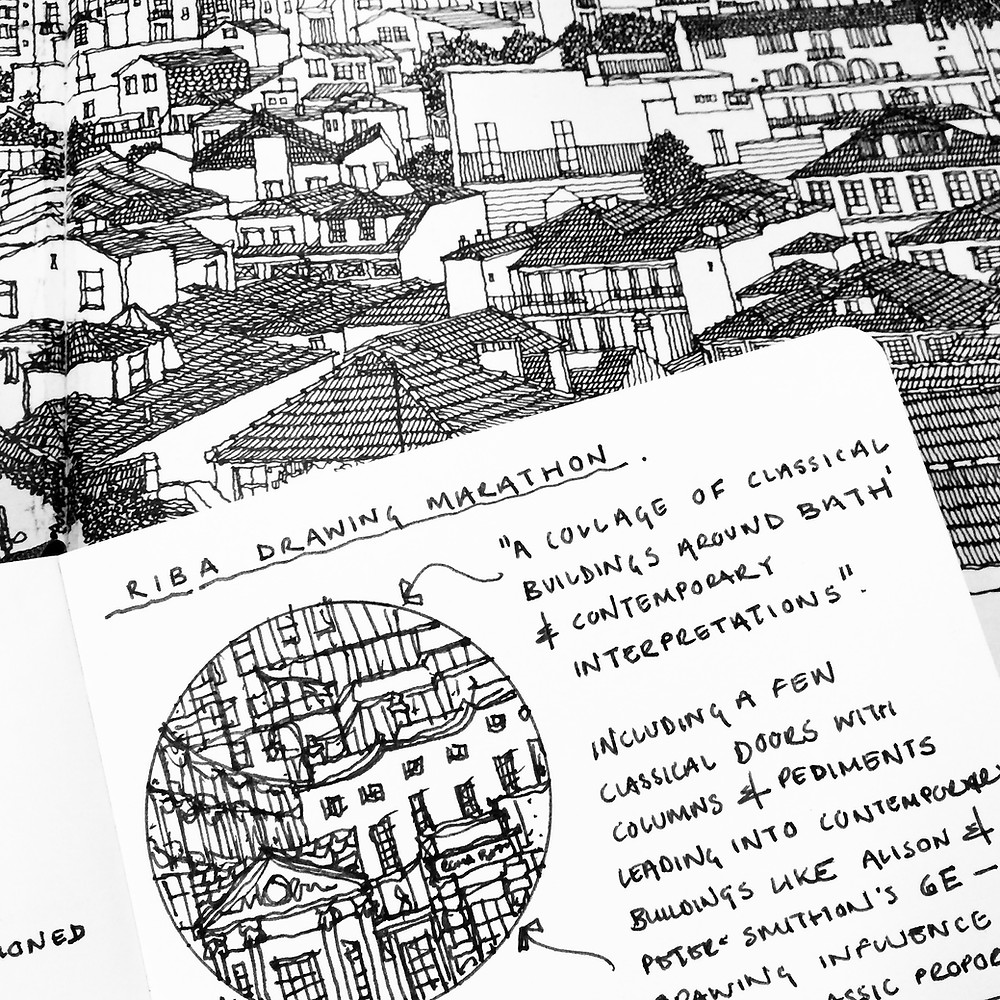 RIBA DRAWING MARATHON.
"A COLLAGE OF CLASSICAL
BUILDINGS AROUND BATH'
& CONTEMPORARY
INTERPRETATIONS".
INCLUDING A FEW
CLASSICAL DOORS WITH
COLUMNS & PEDIMENTS
LEADING INTO CONTEMPORARY
BUILDINGS LIKE ALISON &
PETER SMITHSON'S 6E —
DRAWING INFLUENCE
ASSIC PROPOR
IONED